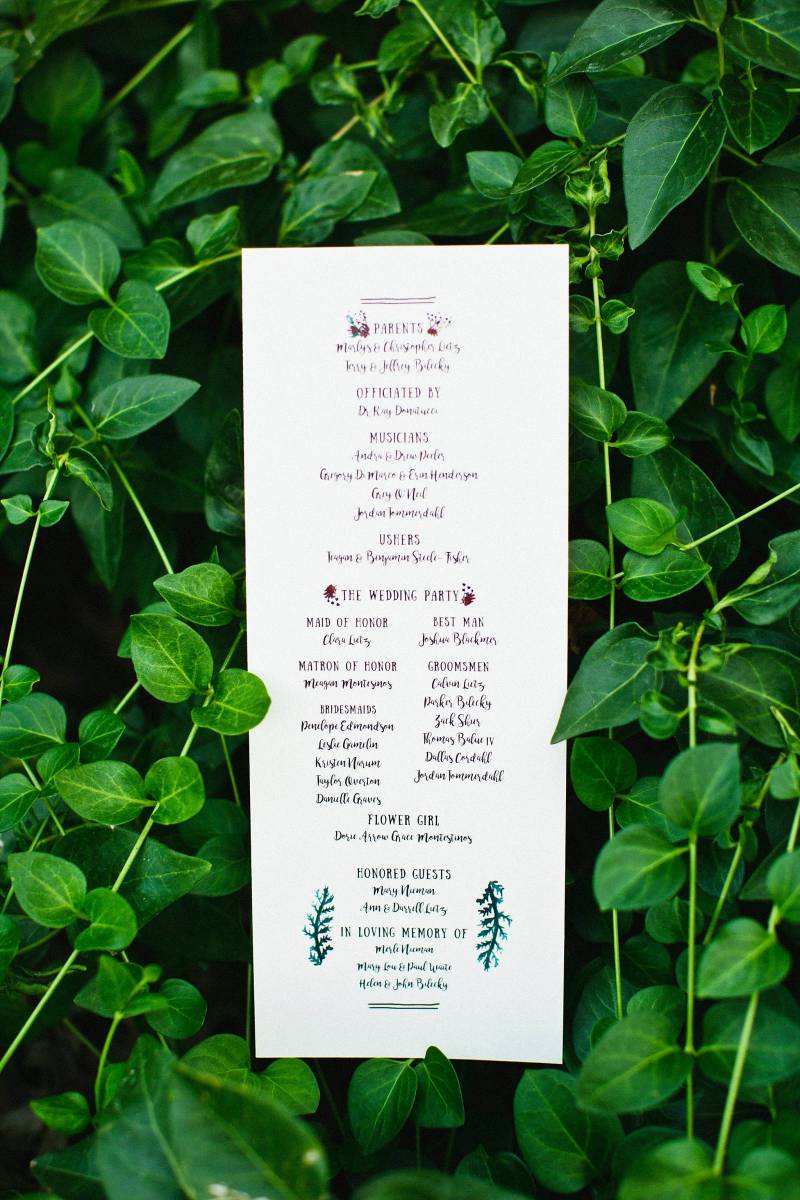 PARENTS
Marlys & Christopher Lietz
Terry & Jeffrey Bilecky
OFFICIATED BY
Dr. Ray Donatucci
MUSICIANS
Andra & Drew Peeler
Gregory Di Marco & Erin Henderson
Grey O'Neil
Jordan Tommerdahl
USHERS
Teagan & Benjamin Steele-Fisher
THE WEDDING PARTY
MAID OF HONOR
Clara Lietz
MATRON OF HONOR
Meagan Montesinos
BRIDESMAIDS
Penelope Edmondson
Leslie Gamelin
Kristen Narum
Taylor Overton
Danielle Graves
BEST MAN
Joshua Blackmer
GROOMSMEN
Calvin Lietz
Parker Bilecky
Zack Skier
Thomas Balue IV
Dallas Cordahl
Jordan Tommerdahl
FLOWER GIRL
Dorie Arrow Grace Montesinos
HONORED GUESTS
Mary Nieman
Ann & Darrell Lietz
IN LOVING MEMORY OF
Merle Nieman
Mary Lou & Paul Waite
Helen & John Bilecky